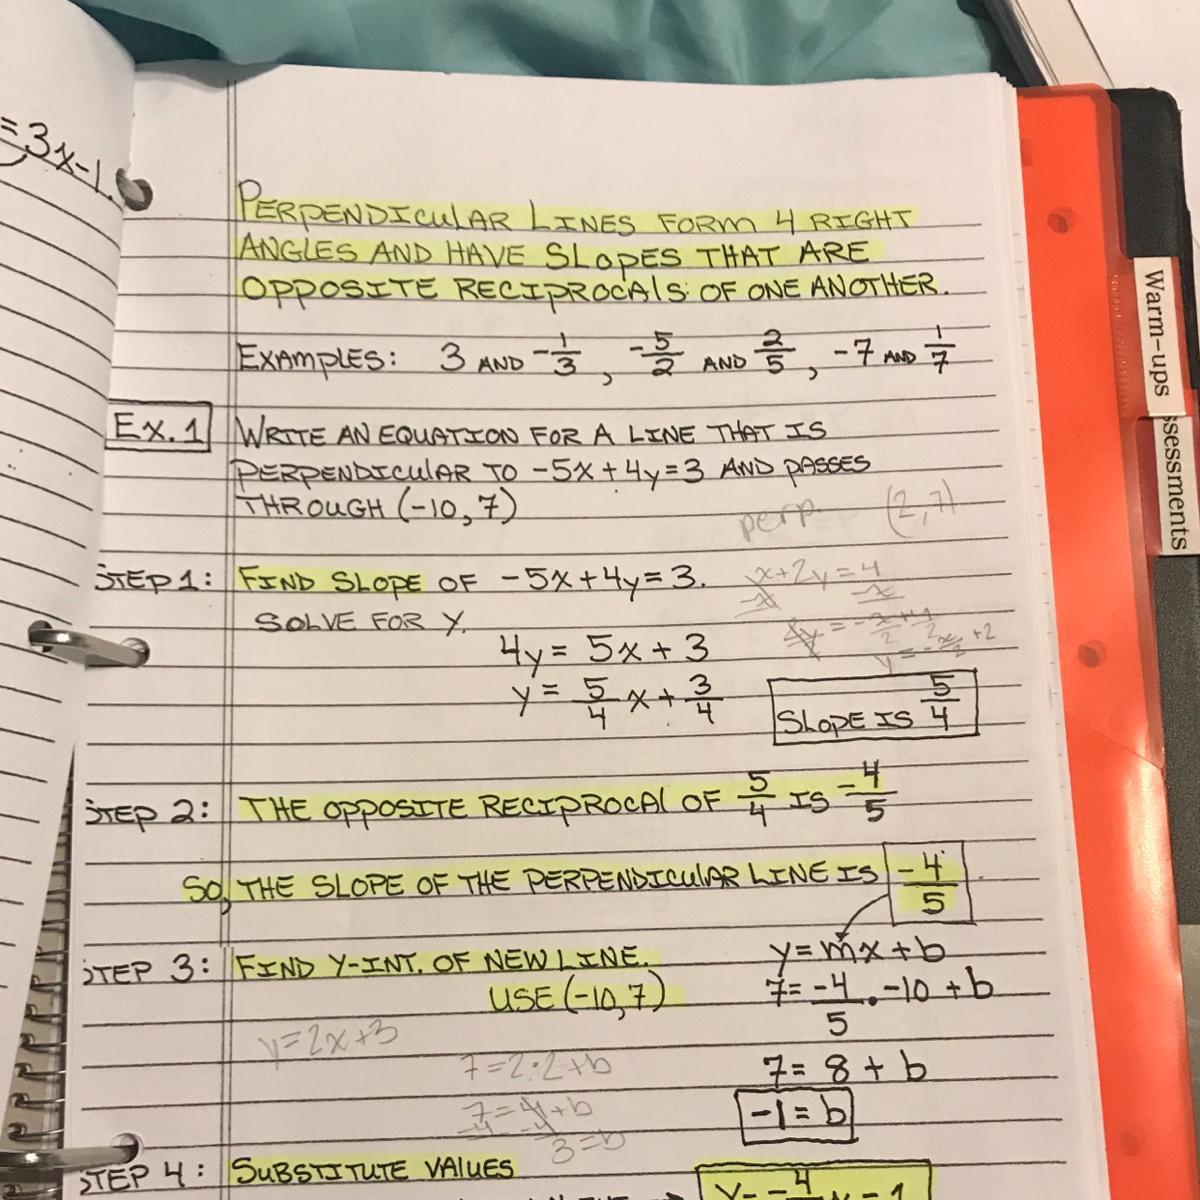 =3x-1.
PERPENDICULAR LINES FORM 4 RIGHT
ANGLES AND HAVE SLOPES THAT ARE
OPPOSITE RECIPROCALS OF ONE ANOTHER.
EXAMPLES: 3 AND -1/3, -5/2 AND 2/5, -7 AND 1/7
EX. 1 WRITE AN EQUATION FOR A LINE THAT IS
PERPENDICULAR TO -5x+4y=3 AND PASSES
THROUGH (-10,7)
perp. (2,7)
STEP 1: FIND SLOPE OF -5x+4y=3.
x+2y=4
-x -x
SOLVE FOR Y.
y=-x/2+2
4y = 5x + 3
y = 5/4 x + 3/4
SLOPE IS 5/4
STEP 2: THE OPPOSITE RECIPROCAL OF 5/4 IS -4/5
SO, THE SLOPE OF THE PERPENDICULAR LINE IS -4/5
STEP 3: FIND Y-INT. OF NEW LINE.
USE (-10,7)
y=mx+b
7=-4/5·-10+b
7=8+b
-1=b
y=2x+3
7=2·2+b
7=4+b
-4 -4
3=b
STEP 4: SUBSTITUTE VALUES
y=-4 x-1
Warm-ups
ssessments